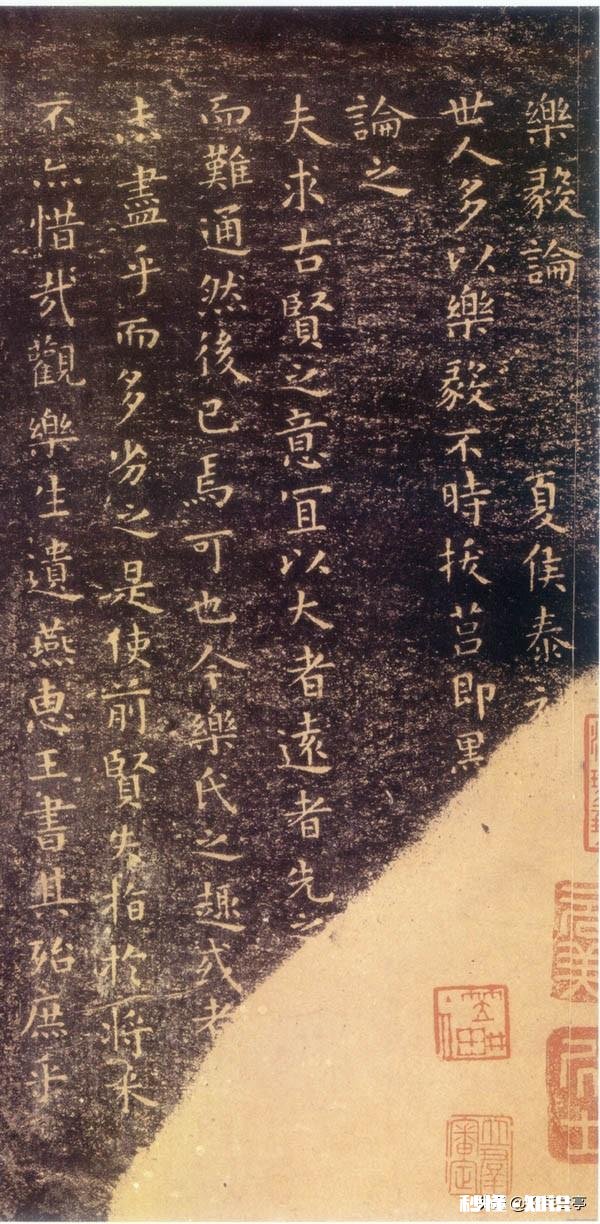 樂毅論　夏侯泰
世人多以樂毅不時拔莒即墨
論之
夫求古賢之意宜以大者遠者先之
而難通然後已焉可也今樂氏之趣或者
未盡乎而多劣之是使前賢失指於將來
不亦惜哉觀樂生遺燕惠王書其殆庶乎
秒懂@知识